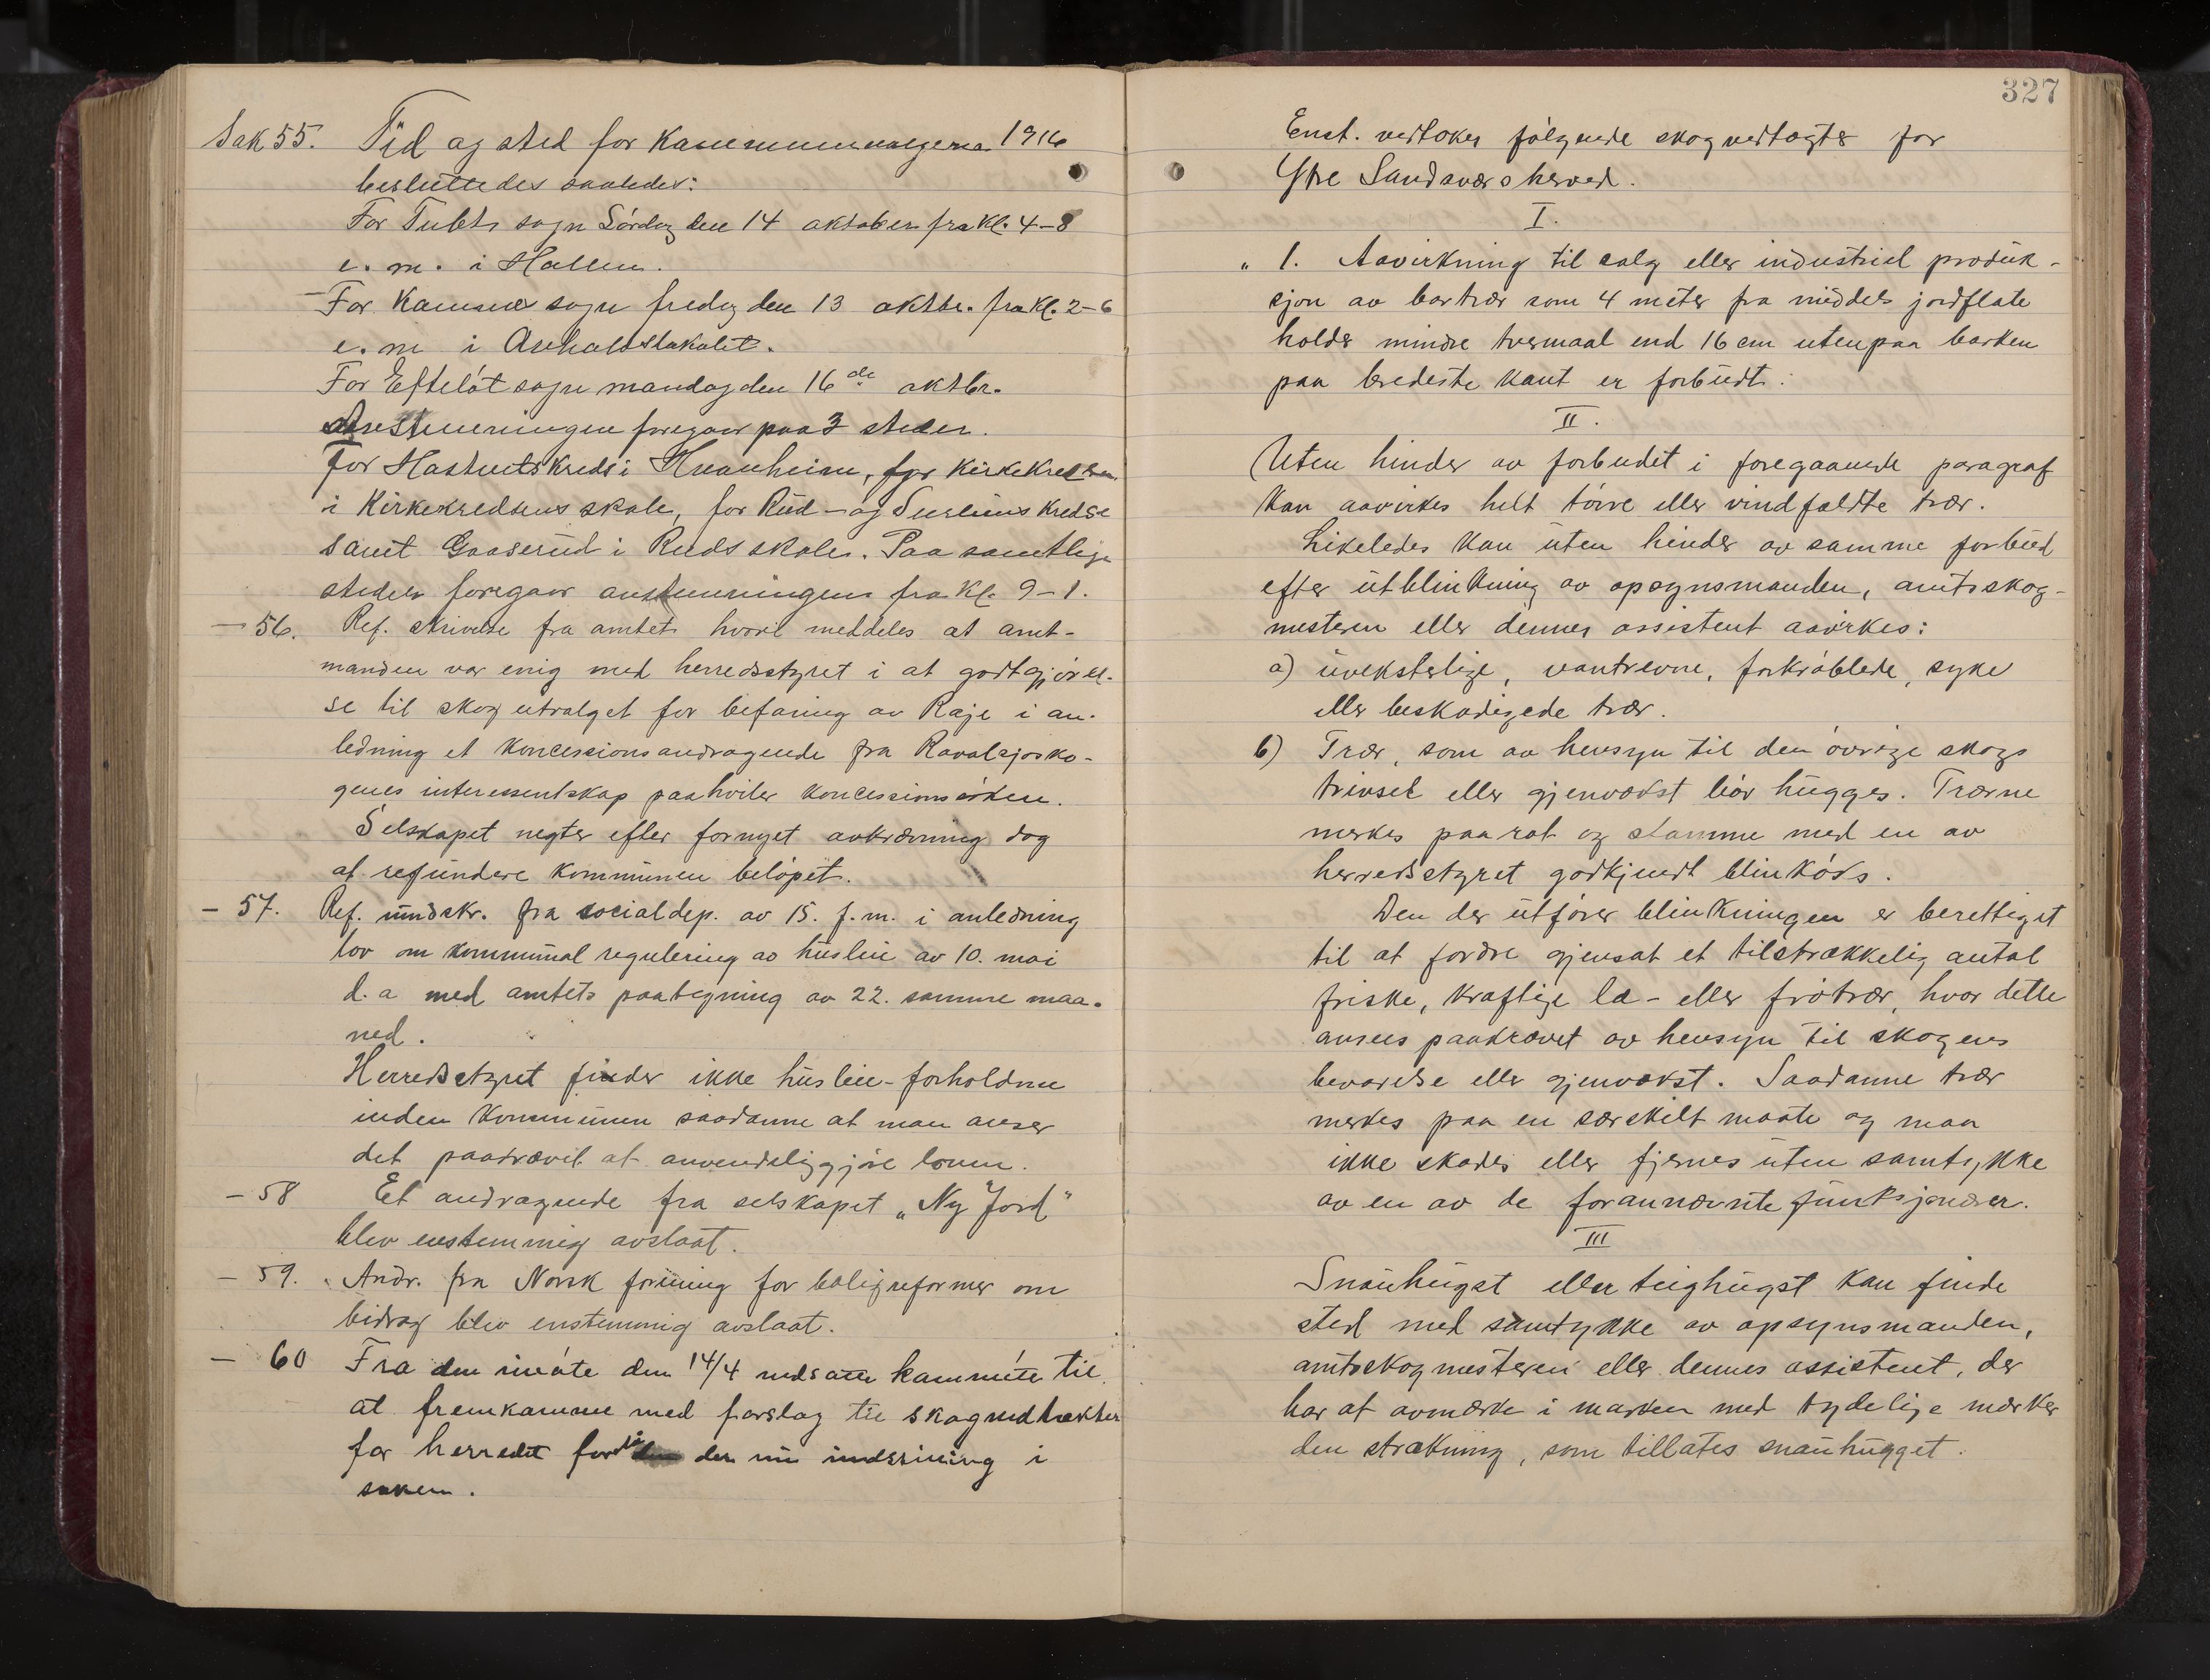 Sak 55. Tid og sted for kommunevalgene 1916
besluttedes saaledes:
For Tufts sogn Lørdag den 14 oktober fra Kl. 4–8
e. m. i Hallen.
For Komnes sogn fredag den 13 oktbr. fra Kl. 2–6
e. m i Avholdslokalet.
For Efteløt sogn mandag den 16de oktbr.
Avstemningen foregaar paa 3 steder.
For Hostvetkreds i Kvanheim, for Kirkekredsen
i Kirkekredsens skole, for Rud- og kredse
samt Gaaserud i Ruds skole. Paa samtlige
steder foregaar avstemningen fra Kl 9–1.
— 56. Ref. skrivelse fra amtet hvori meddeles at amt-
manden var enig med herredsstyret i at godtgjørel-
se til skogutvalget for befaring av Raje i an-
ledning et koncessionsandragende fra Ravalsjøsko-
genes interessentskap paahviler koncessionssøkeren.
Selskapet negter efter fornyet avkrævning dog
at refundere kommunen beløpet.
— 57. Ref. rundskr. fra socialdep. av 15. f. m. i anledning
lov om kommunal regulering av husleie av 10. mai
d. a med amtets paategning av 22. samme maa-
ned.
Herredsstyret finder ikke husleie-forholdene
inden kommunen saadanne at man anser
det paakrævet at anvendeliggjøre loven.
— 58 Et andragende fra selskapet „Ny Jord"
blev enstemmig avslaat.
— 59. Andr. fra Norsk forening for boligreformer om
bidrag blev enstemmig avslaat.
— 60 Fra den i møte den 14/4 nedsatte kommite til
at fremkomme med forslag til skogvedtækter
for herredet forelaa der nu indstilling i
saken.
327
Enst. vedtokes følgende skogvedtægter for
Ytre Sandsværs herred.
I.
„ 1. Aavirkning til salg eller industriel produk-
sjon av bartrær som 4 meter fra middels jordflate
holder mindre tvermaal end 16 cm utenpaa barken
paa bredeste kant er forbudt.
II.
Uten hinder av forbudet i foregaaende paragraf
kan aavirkes helt tørre eller vindfældte trær.
Likeledes kan uten hinder av samme forbud
efter utblinkning av opsynsmanden, amtsskog-
mesteren eller dennes assistent aavirkes:
a) uvekstelige, vantrevne, forkrøblede, syke
eller beskadigede trær.
b) Trær, som av hensyn til den øvrige skogs
trivsel eller gjenvækst bør hugges. Trærne
merkes paa rot og stamme med en av
herredsstyret godkjendt blinkøks.
Den der utfører blinkningen er berettiget
til at fordre gjensat et tilstrækkelig antal
friske, kraftige læ- eller frøtrær, hvor dette
ansees paakrævet av hensyn til skogens
bevarelse eller gjenvækst. Saadanne trær
merkes paa en særskilt maate og maa
ikke skades eller fjernes uten samtykke
av en av de forannævnte funksjonærer.
III
Snauhugst eller teighugst kan finde
sted med samtykke av opsynsmanden,
amtsskogmesteren eller dennes assistent, der
har at avmærke i marken med tydelige mærker
den strækning, som tillates snauhugget.